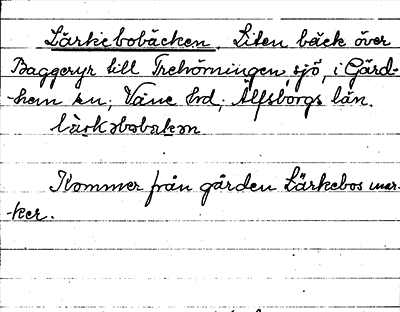 Lärkebobäcken. Liten bäck över
Baggeryr till Trehörningen, sjö, i Gärd-
hem sn; Väne hd; Älfsborgs län.
lä̀rkəbobäkən
Kommer från gården Lärkebos mar-
ker.